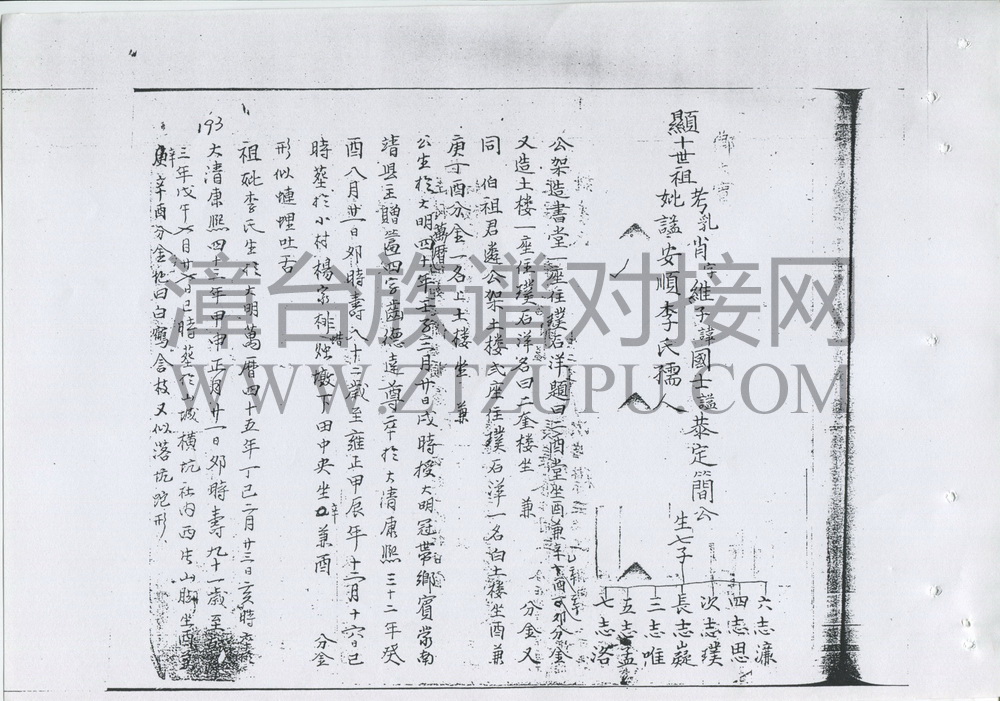 顯十世祖
考乳肖字維子諱國士謚恭定簡公
妣謚安順李氏孺人
生七子
六志濂
四志思
次志璞
長志嶷
三志唯
五志孟
七志洛
公架造書堂一座住璞石洋題曰二酉堂坐酉兼辛 分金
又造土楼一座住璞石洋名曰二奎楼坐 兼 分金又
同 伯祖君遴公架土楼弍座住璞石洋一名白土楼坐酉兼
庚 分金一名上土楼坐 兼
公生於大明萬曆四十年壬子三月廿日戌時授大明冠帶鄉賓常南
靖县主贈匾四字齒德達尊卒於大清康熙三十二年癸
酉八月廿一日夘時壽八十二歲至雍正甲辰年十二月十六日巳
時塟於小村楊家排燉下田中央坐 兼酉 分金
形似 吐舌
祖妣李氏生於大明萬曆四十五年丁巳二月廿三日亥時
193
大清康熙四十三年甲申正月廿一日夘時壽九十一歲至
三年戊午 月廿七日巳時塟於山城横坑社内西片山脚坐酉
辛酉分金地曰白鶴含枝又似落坑蛇形
漳台族谱对接网
WWW.ZTZUPU.COM